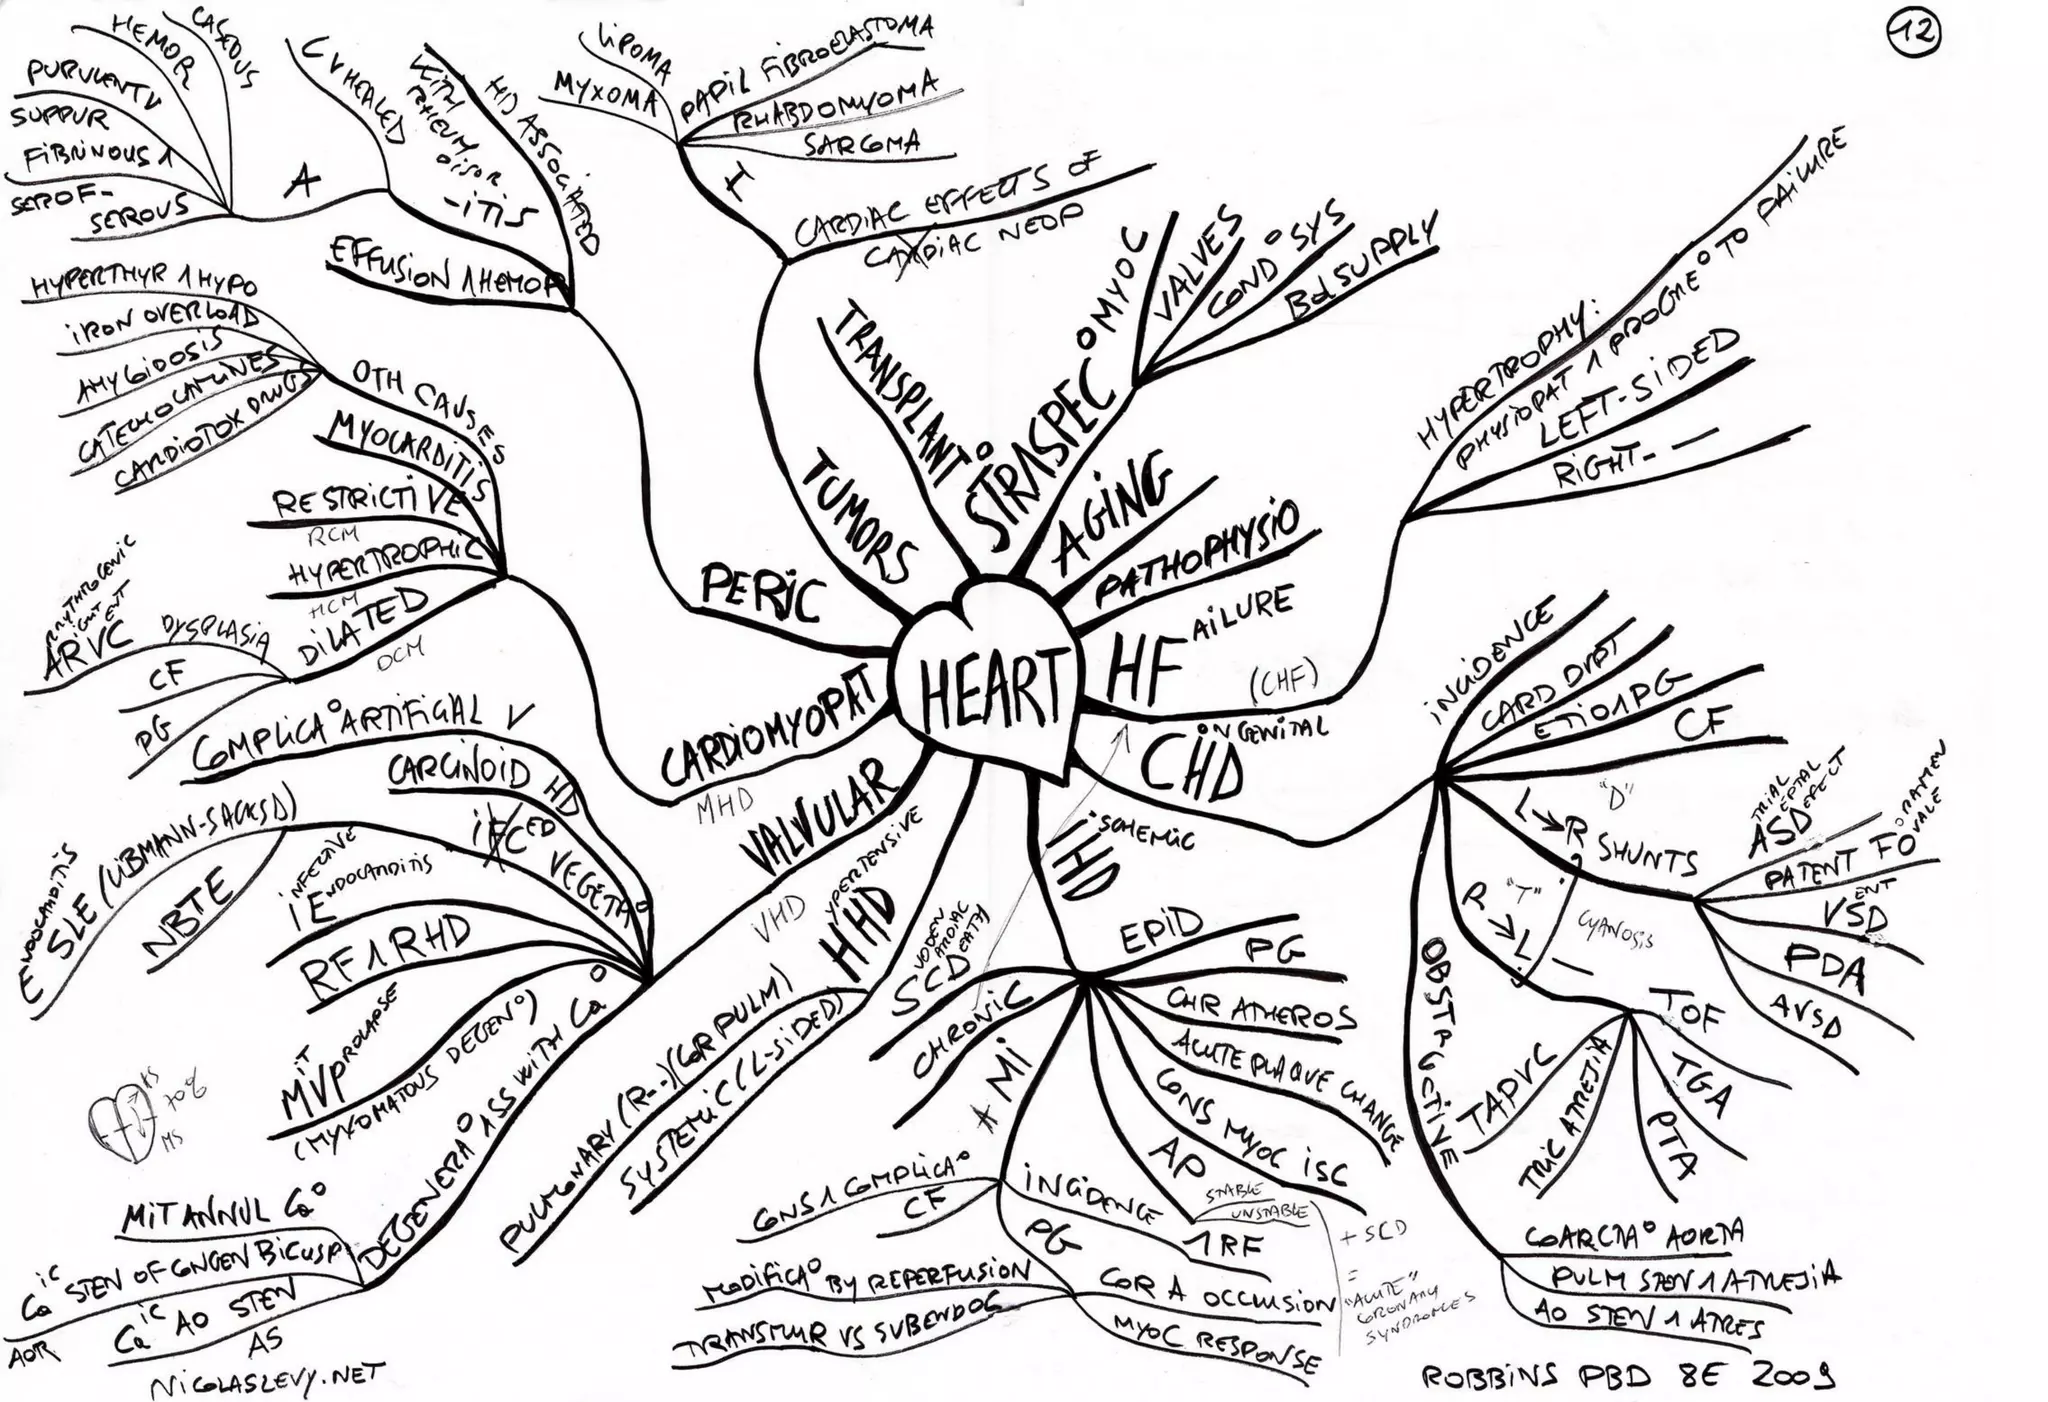 12
HEART
STRASPEC°
MYOC
VALVES
COND° SYS
BLSUPPLY
AGING
PATHOPHYSIO
HF AILURE
(CHF)
HYPERTROPHY:
PHYSIOPAT 1 PROGRE° TO FAILURE
LEFT-SIDED
RIGHT- —
CHD
ONGENITAL
INCIDENCE
CARD DVPT
ETIO1PG
CF
L→R SHUNTS
"D"
ASD
TRIAL
EPTAL
EFECT
PATENT FO
ORAMEN
OVALE
VSD
ENT
PDA
AVSD
R→L —
"T"
CYANOSIS
TOF
TGA
PTA
TRIC ATREJIA
TAPVC
OBSTRUCTIVE
COARCTA° AORTA
PULM STEN 1 ATREJIA
AO STEN 1 ATRES
IHD
ISCHEMIC
EPID
PG
CHR ATHEROS
ACUTE PLAQUE CHANGE
CONS MYOC ISC
AP
STABLE
UNSTABLE
+ SCD
=
"ACUTE"
CORONARY
SYNDROMES
A MI
INCIDENCE
1 RF
PG
COR A OCCLUSION
MYOC RESPONSE
TRANSMUR VS SUBENDOC
MODIFICA° BY REPERFUSION
CF
CONS 1 COMPLICA°
CHRONIC
SCD
UDDEN
ARDIAC
EATH
HHD
YPERTENSIVE
SYSTEMIC (L-SIDED)
PULMONARY (R--) (COR PULM)
VALVULAR
VHD
DEGENERA° ASS WITH Ca°
MIT ANNUL Ca°
Ca ic STEN OF CONGEN BICUSP
AOR
Ca ic AO STEN
AS
MVP
MIT
PROLAPSE
(MYXOMATOUS DEGEN°)
RF 1 RHD
IE
INFECTIVE
ENDOCARDITIS
VEGETA°
NBTE
SLE (LIBMANN-SACKS D)
ENDOCARDITIS
CARCINOID HD
COMPLICA° ARTIFICIAL V
CARDIOMYOPAT
MHD
DILATED
DCM
ARVC
RIGHT
DYSPLASIA
CF
PG
HYPERTROPHIC
HCM
RESTRICTIVE
RCM
MYOCARDITIS
OTH CAUSES
HYPERTHYR 1 HYPO
IRON OVERLOAD
AMYLOIDOSIS
CATECHOLAMINES
CARDIOTOX DRUGS
PERIC
EFFUSION 1 HEMOP
-ITIS
A
SEROUS
SEROF-
FIBRINOUS 1
SUPPUR
PURULENT V
HEMOR
CASEOUS
C V HEALED
WITH
RHEUM
DISOR
HD ASSOCIATED
TUMORS
I
MYXOMA
LIPOMA
PAPIL FIBROELASTOMA
RHABDOMYOMA
SARCOMA
CARDIAC EFFECTS OF
CARDIAC NEOP
TRANSPLANT°
AS
70%
MS
NICOLASLEVY.NET
ROBBINS PBD 8E 2009